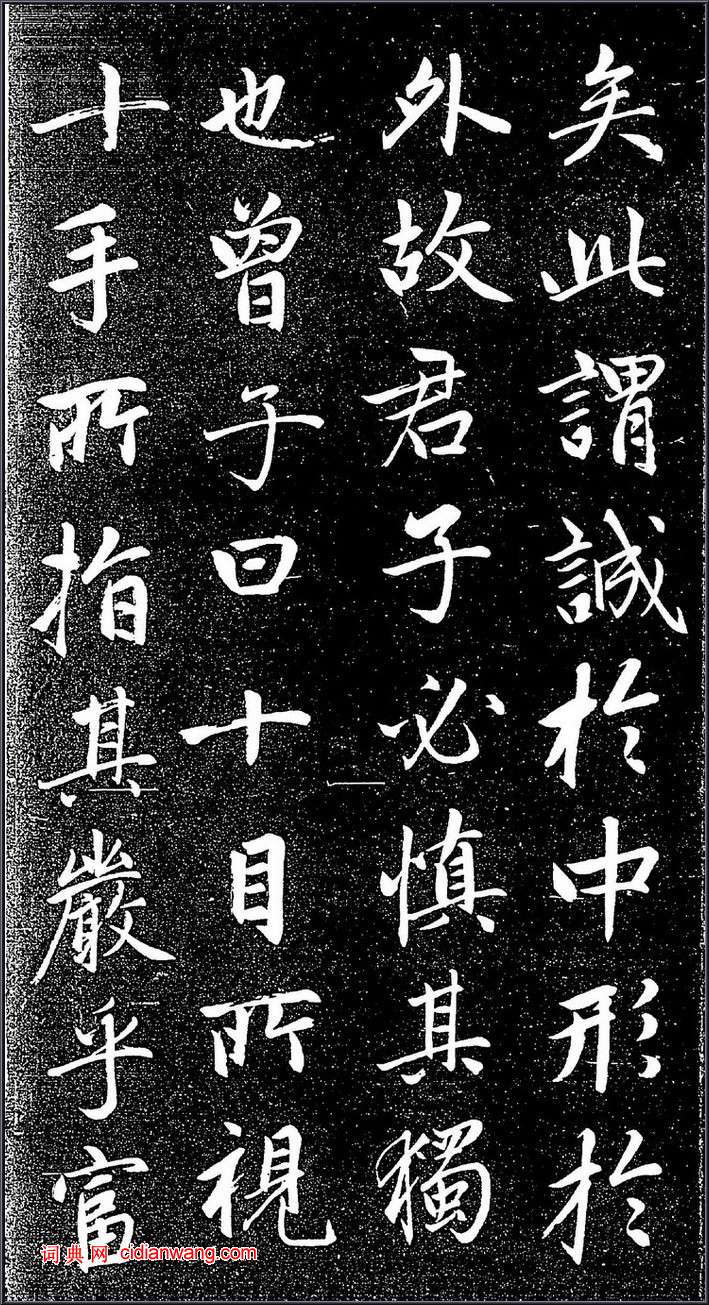 矣此謂誠於中形於
外故君子必慎其獨
也曾子曰十目所視
十手所指其嚴乎富
词典网 cidianwang.com